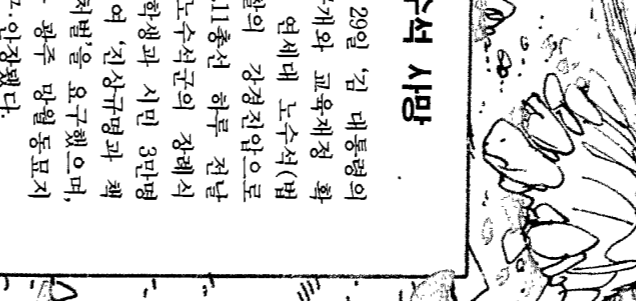 수석 사망
29일 '김 대통령의
개와 교육재정 확
연세대 노수석(법
찰의 강경진압으로
.11총선 하루 전날
노수석군의 장례식
학생과 시민 3만명
여 '진상규명과 책
처벌'을 요구했으며,
광주 망월동묘지
안장됐다.